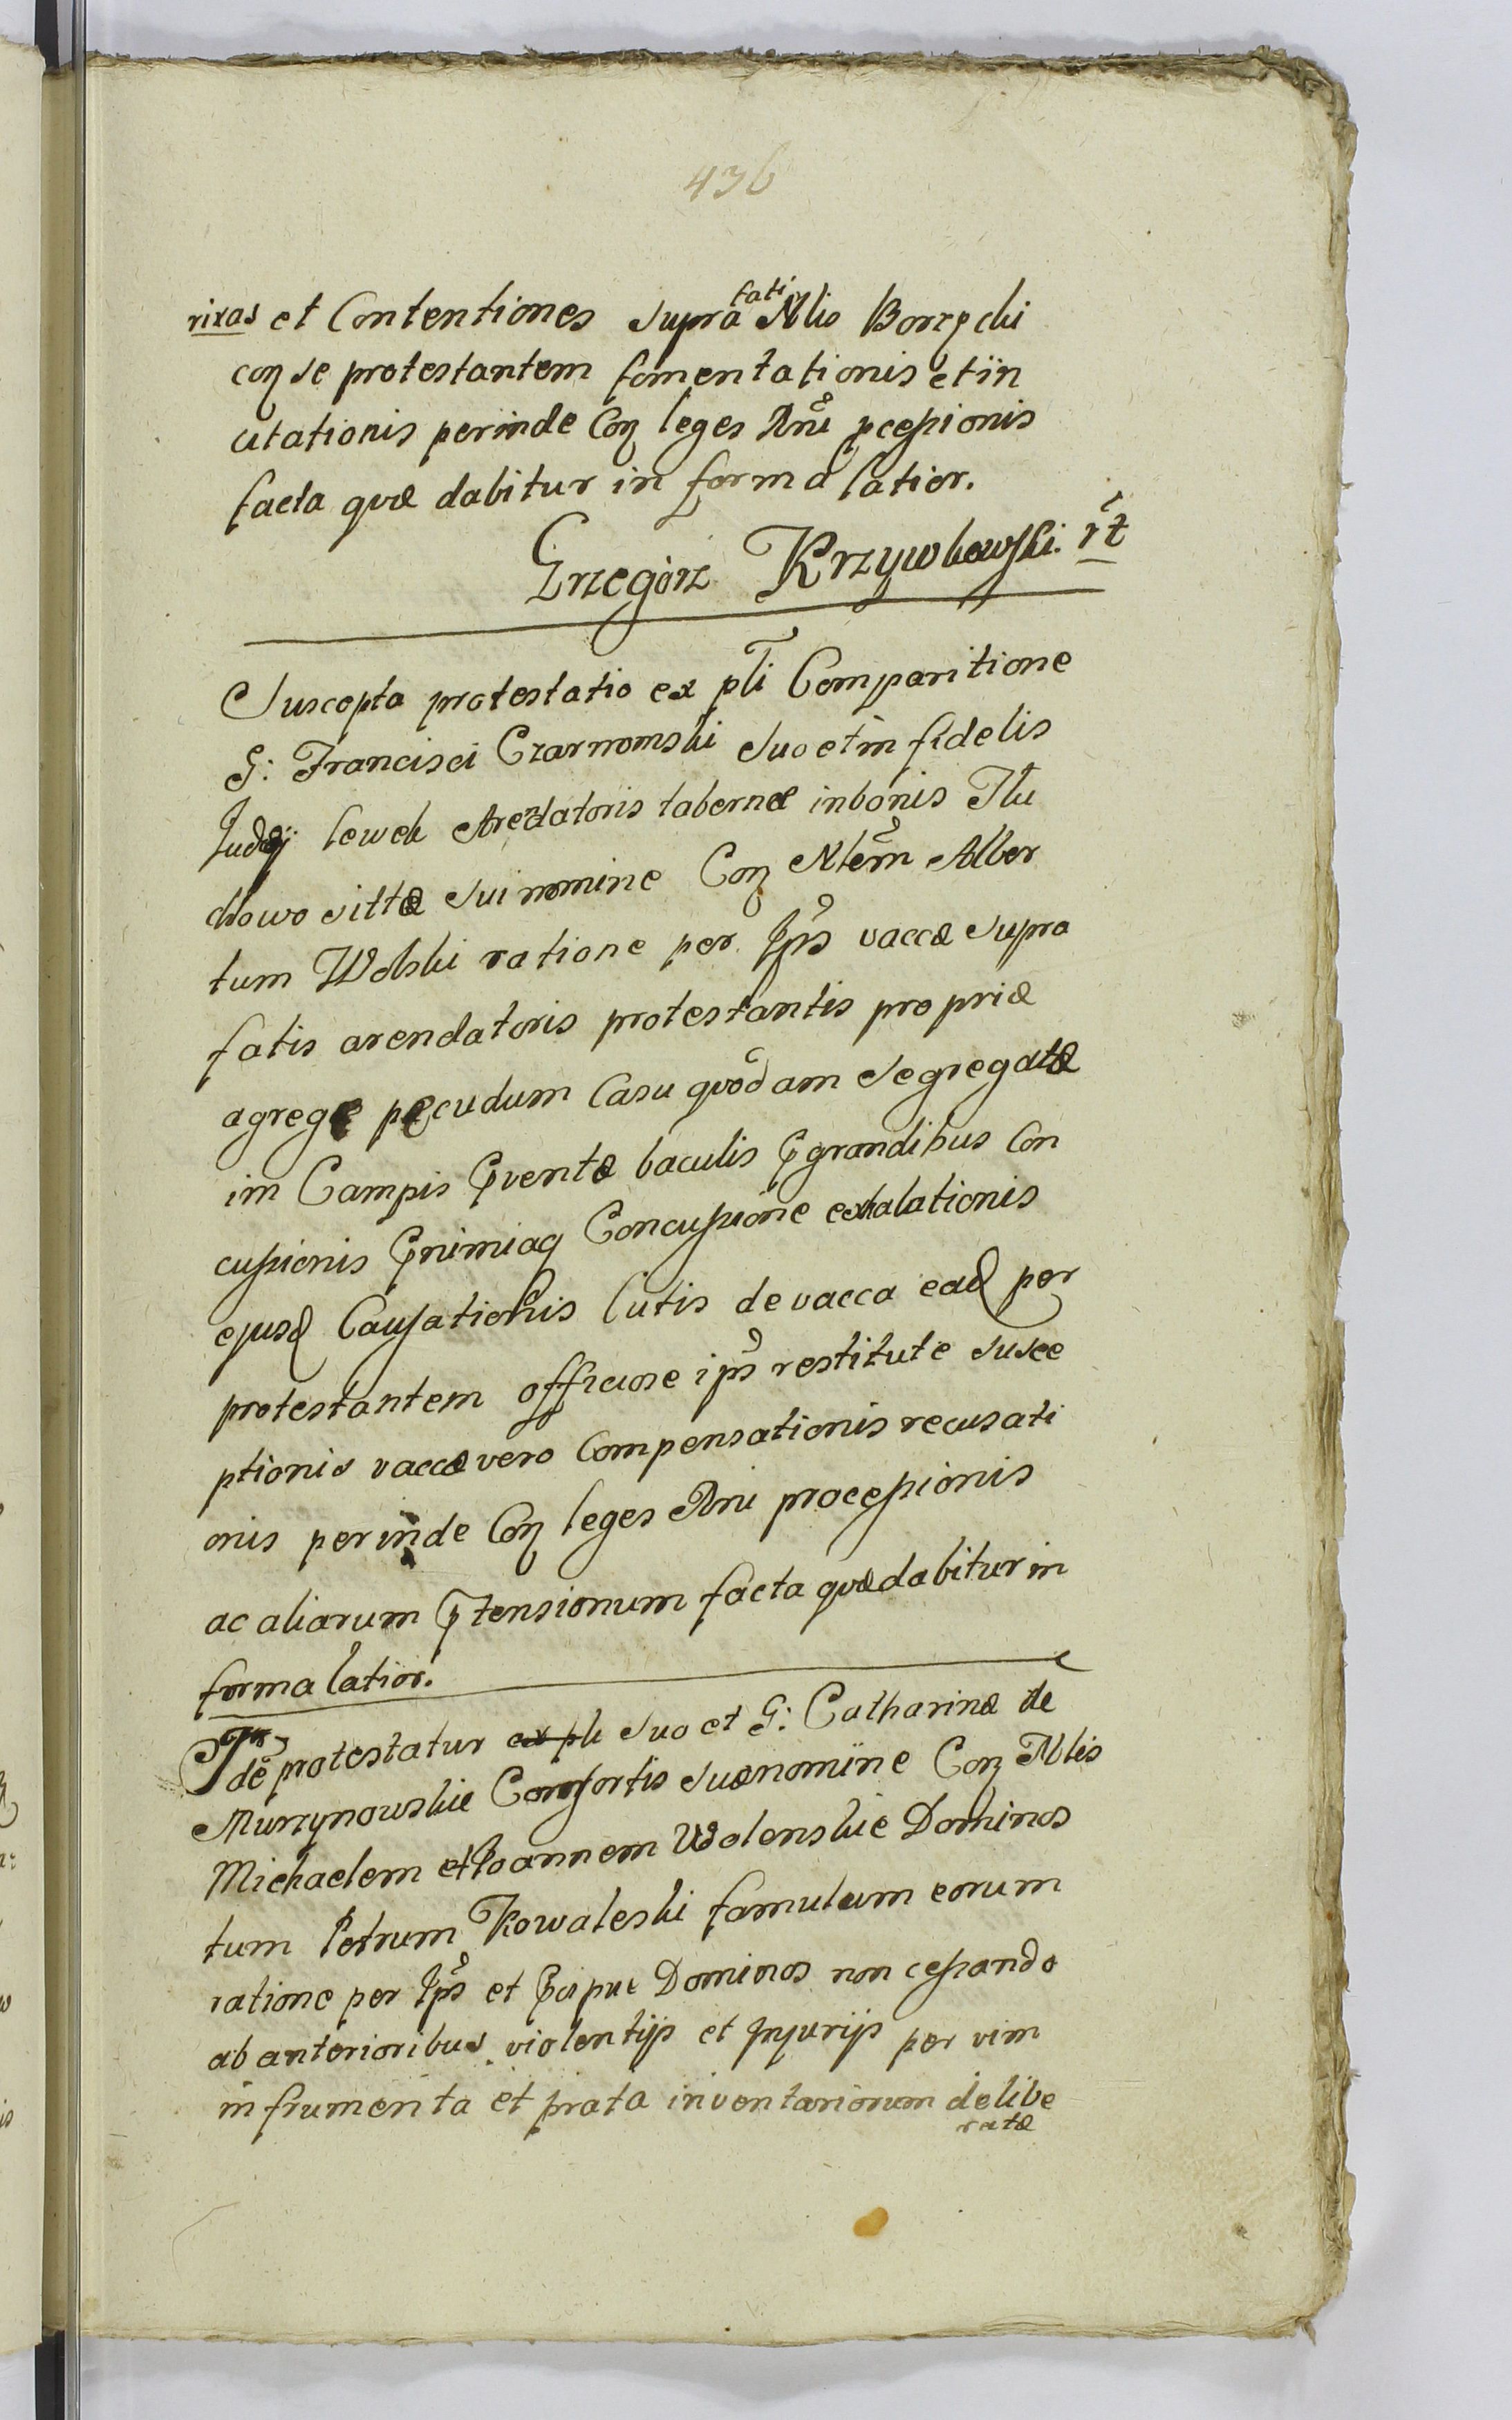 436
rixas et Contentiones supra fati Nlis Borzęcki
coᷓ se protestantem fomentationis et in
citationis perinde Coᷓ leges Rni pcessionis
facta quæ dabitur in forma latior.
Grzegórz Krzywkowski. rt
Suscepta protestatio ex pli Comparitione
G: Francisci Czarnomski suo et infidelis
Judæi lewek Arendatoris tabernæ in bonis Tlu
chowo sittæ sui nomine Coᷓ Nlem Alber
tum Wolski ratione per Ips vaccæ supra
fatis arendatoris protestantis propriæ
agrege pecudum Casu quodam segregatæ
im Campis Pventæ baculis Pgrandibus Con
cussionis Pnimiaq Concussione exhalationis
ejusd Causationis Cutis de vacca ead per
protestantem officiose ips restitute susce
ptionis vaccæ vero Compensationis recusati
onis perinde Coᷓ leges Rni processionis
ac aliarum Ptensionum facta quæ dabitur in
forma latior.
Idē protestatur ex pli suo et G: Catharinæ de
Murzynowskie Consortis suæ nomine Coᷓ Nlis
Michaelem et Joannem Wolenskie Dominos
tum Petrum Kowaleski famulum eorum
ratione per Ips et Pcipue Dominos non cessando
ab anterioribus violentijs et Injurijs per vim
in frumenta et prata inventariorum delibe
ratæ